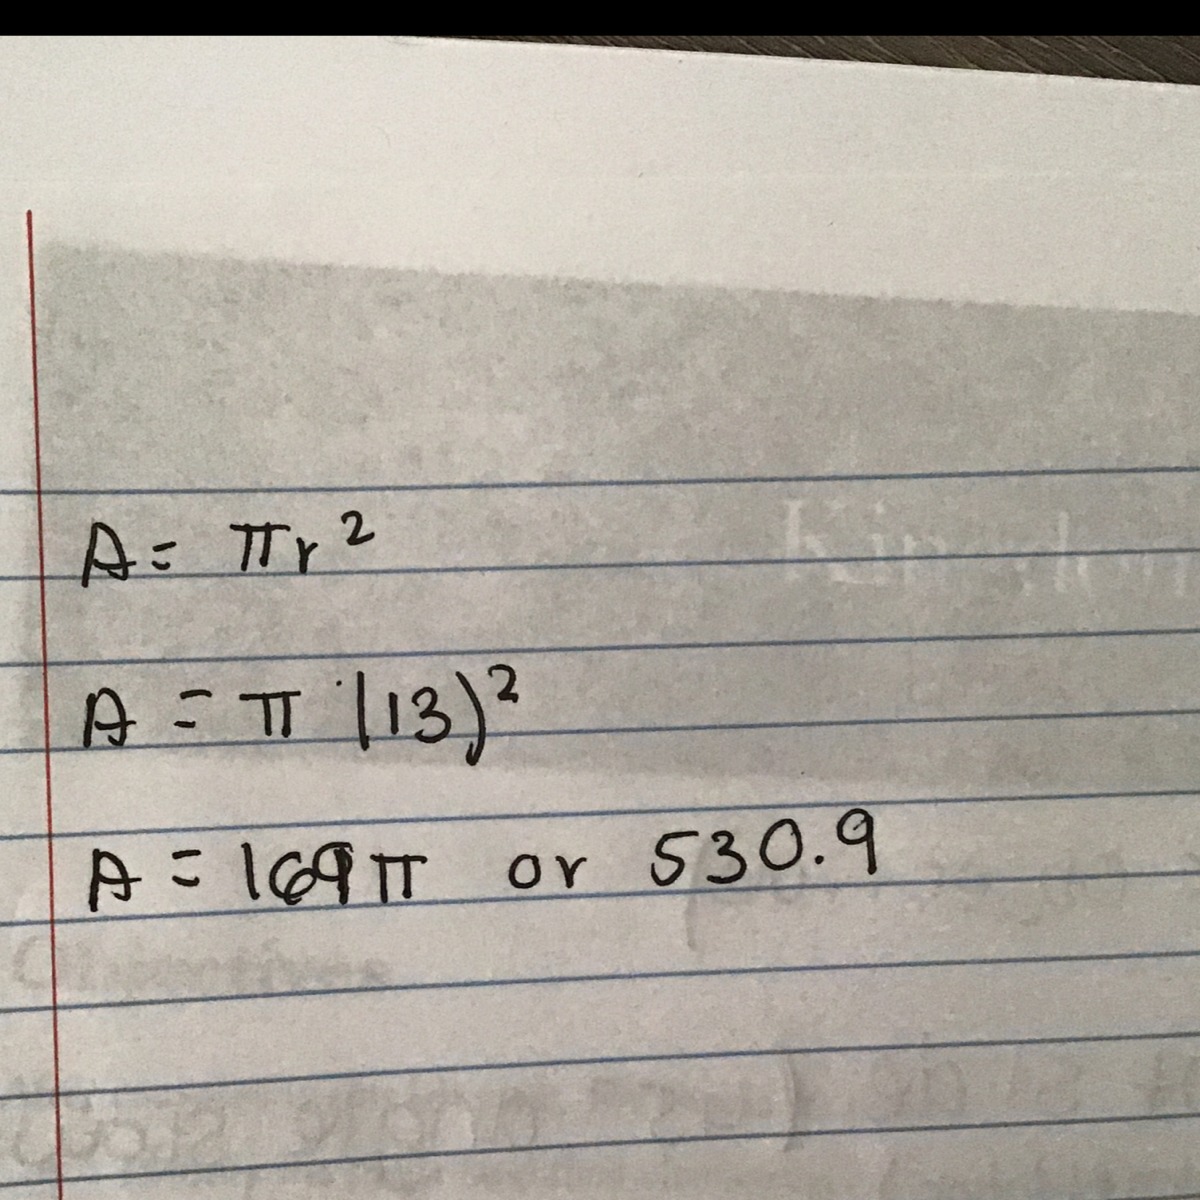 A = πr²
A = π (13)²
A = 169π or 530.9